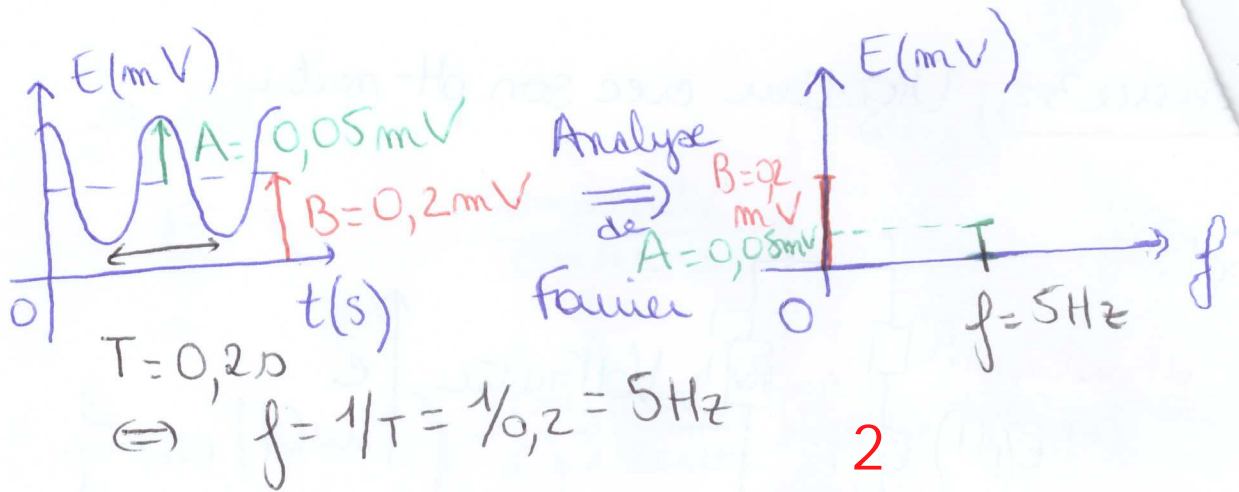 E(mV)
A = 0,05mV
B = 0,2mV
0
t(s)
T = 0,2s
⇔ f = 1/T = 1/0,2 = 5Hz
Analyse
⇒
de
Fourier
E(mV)
B=0,2
mV
A = 0,05mV
0
f = 5Hz
f
2